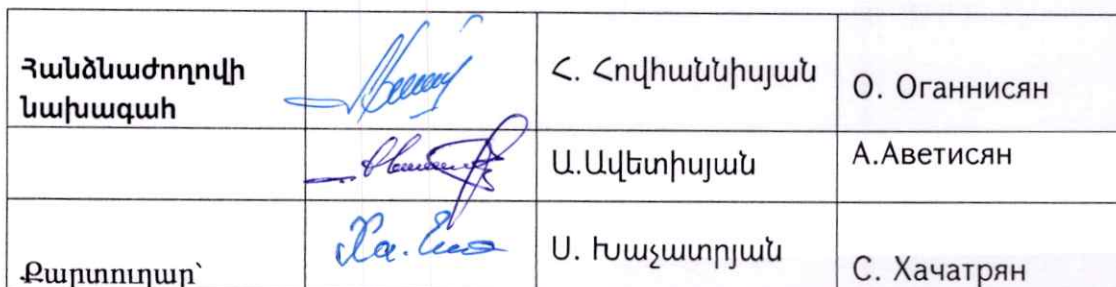 Հանձնաժողովի
նախագահ
Հ. Հովհաննիսյան
О. Оганнисян
Ա.Ավետիսյան
А.Аветисян
Քարտուղար՝
Ս. Խաչատրյան
С. Хачатрян